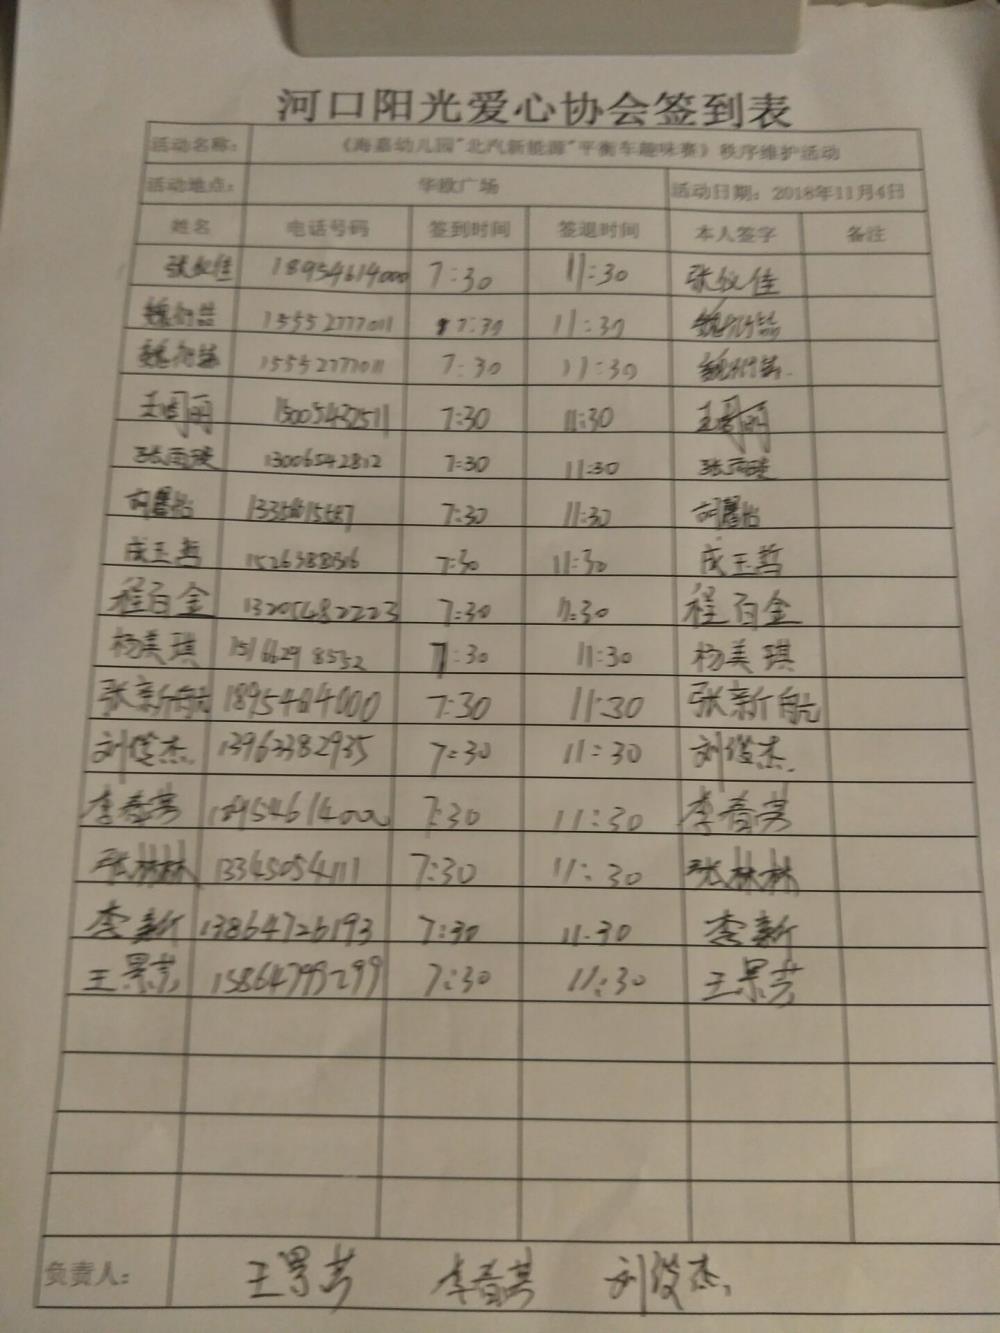 河口阳光爱心协会签到表
活动名称： 《海嘉幼儿园"北汽新能源"平衡车趣味赛》秩序维护活动
活动地点： 华欧广场 活动日期：2018年11月4日
姓名 电话号码 签到时间 签退时间 本人签字 备注
张仪佳 18954614000 7:30 11:30 张仪佳
15552777011 7:30 11:30
15552777011 7:30 11:30
7:30 11:30
张雨陵 13006542812 7:30 11:30 张雨陵
胡馨怡 7:30 11:30 胡馨怡
成玉哲 7:30 11:30 成玉哲
程百金 13205482223 7:30 11:30 程百金
杨美琪 15166298552 7:30 11:30 杨美琪
张新航 7:30 11:30 张新航
刘俊杰 13963382935 7:30 11:30 刘俊杰
李春英 18954614000 7:30 11:30 李春英
张林林 13345054111 7:30 11:30 张林林
李新 13864726193 7:30 11.30 李新
王景芳 15864799299 7:30 11:30 王景芳
负责人： 王景芳 李春英 刘俊杰